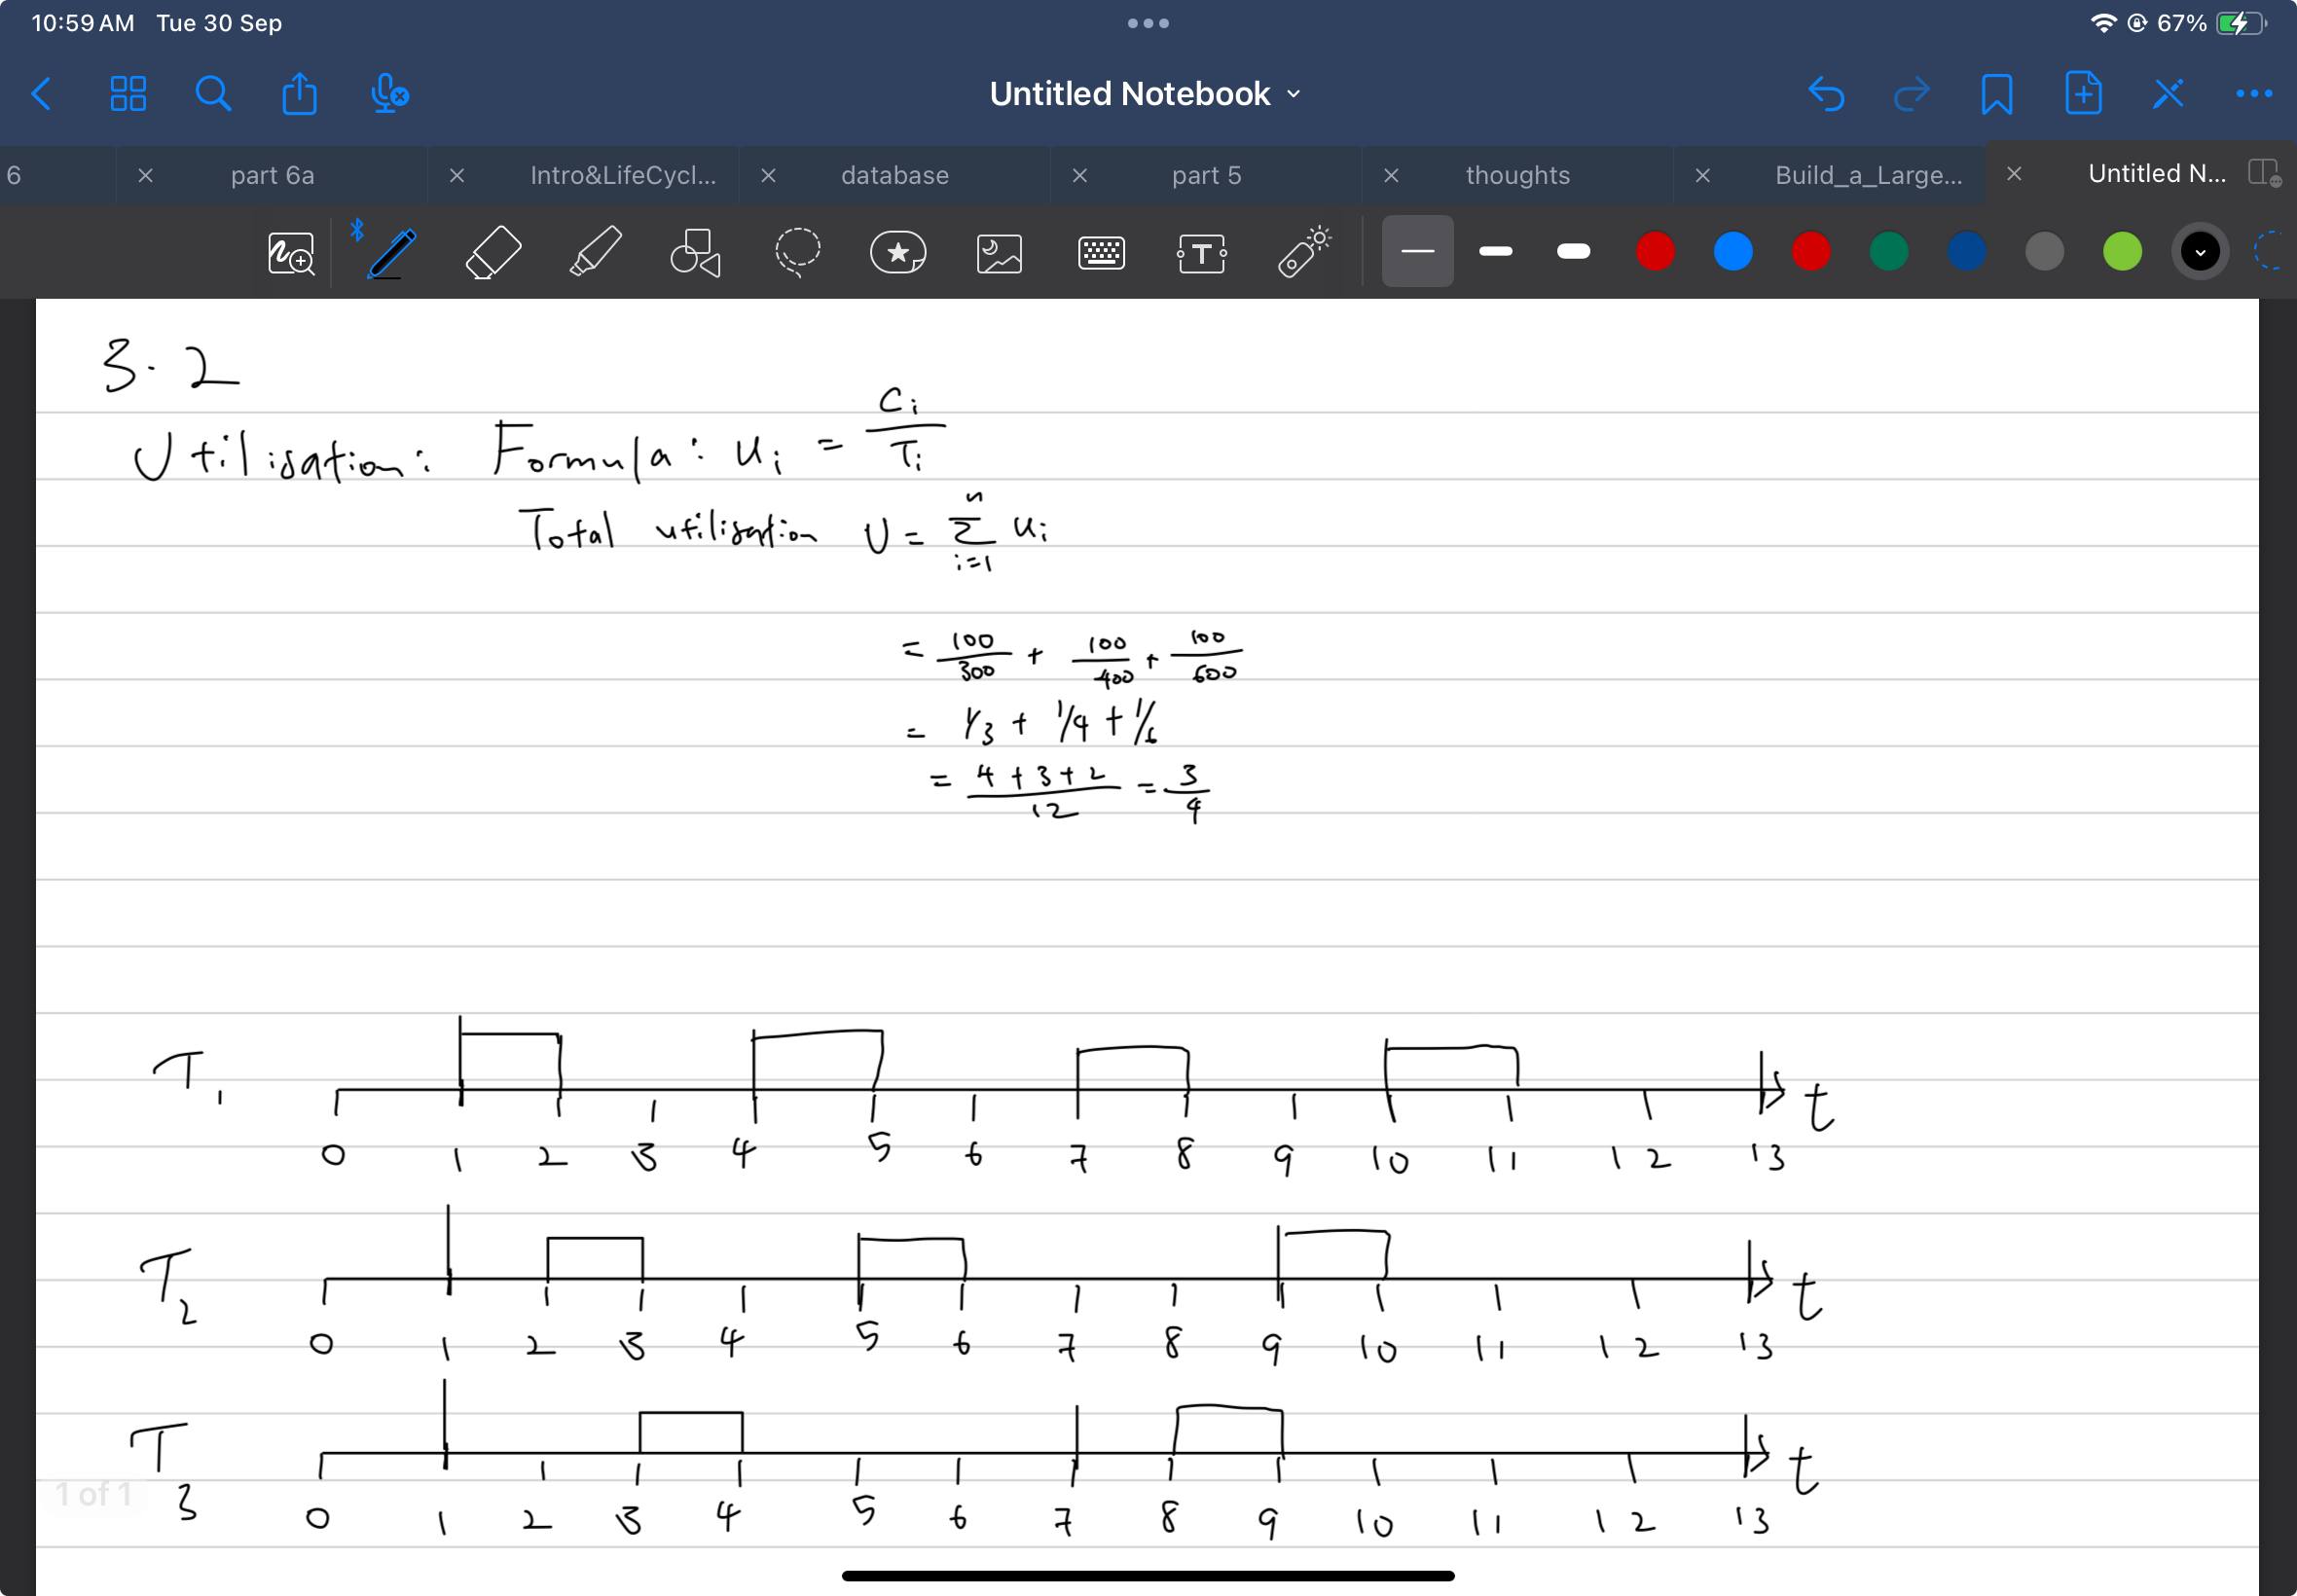 10:59 AM Tue 30 Sep
67%
Untitled Notebook
6
part 6a
Intro&LifeCycl...
database
part 5
thoughts
Build_a_Large...
Untitled N...
T
3.2
Utilisation: Formula: ui = Ci/Ti
Total utilisation U = n Σ i=1 ui
= 100/300 + 100/400 + 100/600
= 1/3 + 1/4 + 1/6
= 4+3+2/12 = 3/4
T1 t
0 1 2 3 4 5 6 7 8 9 10 11 12 13
T2 t
0 1 2 3 4 5 6 7 8 9 10 11 12 13
T3 t
1 of 1
0 1 2 3 4 5 6 7 8 9 10 11 12 13